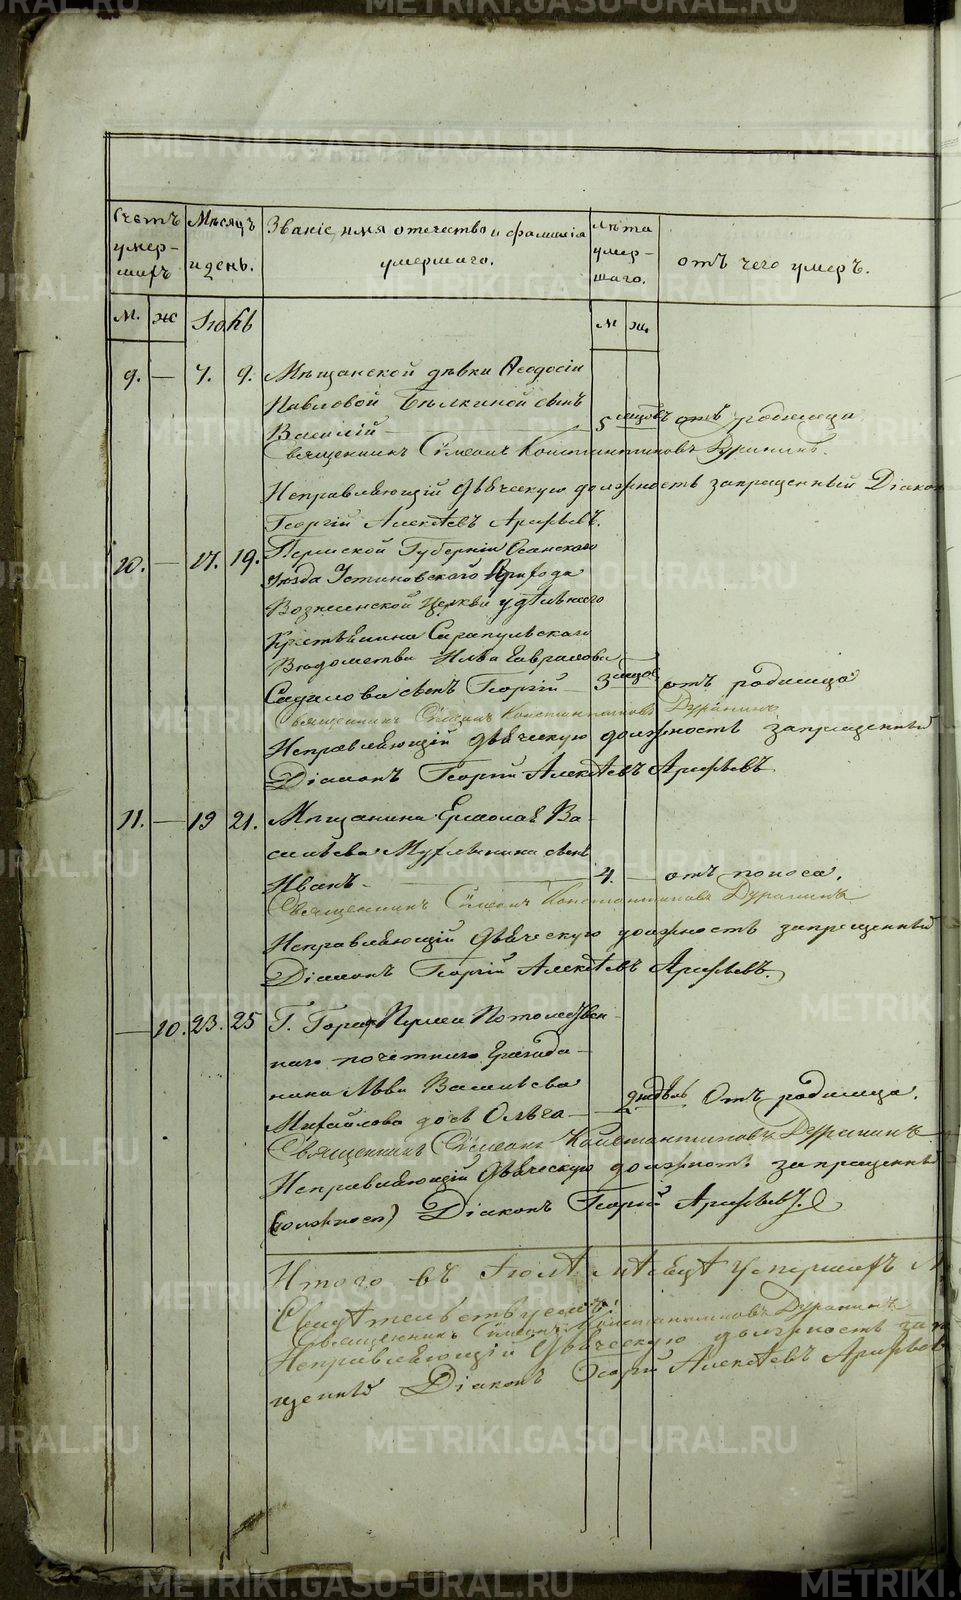 Счетъ умер-шихъ
Мѣсяцъ и день.
Званіе, имя отечество и фамилія умершаго.
лѣта умер-шаго.
отъ чего умеръ.
м. ж Іюль м ж.
9. — 7. 9. Мѣщанской дѣвки Ѳеодосіи
Павловой Бѣлкиной сынъ
Василій 5 мцовъ отъ родимца
Священникъ Сімеонъ Константиновъ Дуранинъ.
Исправляющій дьяческую должность запрещенный Діакон
Георгій Алексѣевъ Арефьевъ.
10. — 17. 19. Пермской Губерніи Осинскаго
уѣзда Устиновскаго Прихода
Вознесенской церкви удѣльнаго
Крестьянина Сарапульскаго
Вѣдомства Ильи Гаврилова
Садилова сынъ Георгій 3 мцов отъ родимца
Священникъ Сімеонъ Константиновъ Дуранинъ
Исправляющій дьяческую должность запрещенный
Діаконъ Георгій Алексѣевъ Арефьевъ
11. — 19 21. Мѣщанина Ермолая Ва-
сильева Мухлынина сынъ
Иванъ 4. — отъ поноса.
Священникъ Сімеонъ Константиновъ Дуранинъ
Исправляющій дьяческую должность запрещенный
Діаконъ Георгій Алексѣевъ Арефьевъ.
— 10. 23. 25 Г. Города Перми Потомствен-
наго почетнаго Гражда-
нина Льва Васильева
Михайлова дочь Ольга — 2 недѣль Отъ родимца.
Священникъ Сімеонъ Константиновъ Дуранинъ
Исправляющій дьяческую должность запрещенный
(должност) Діаконъ Георгій Арефьевъ.
Итого въ Іюлѣ мѣсяцѣ умершихъ М
Свидѣтельствуемъ:
Священникъ Сімеонъ Константиновъ Дуранинъ
Исправляющій дьяческую должность запре
щенный Діаконъ Георгій Алексѣевъ Арефьев
METRIKI.GASO-URAL.RU